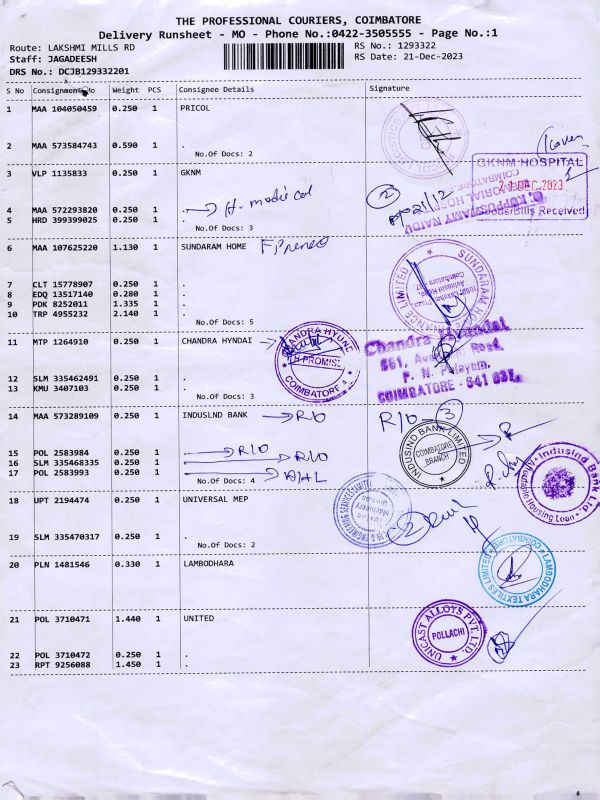 THE PROFESSIONAL COURIERS, COIMBATORE
Delivery Runsheet - MO - Phone No.:0422-3505555 - Page No.:1
Route: LAKSHMI MILLS RD
RS No.: 1293322
Staff: JAGADEESH
RS Date: 21-Dec-2023
DRS No.: DCJB129332201
S No Consignment No Weight PCS Consignee Details Signature
1 MAA 104050459 0.250 1 PRICOL
2 MAA 573584743 0.590 1 .
No.Of Docs: 2
3 VLP 1135833 0.250 1 GKNM
GKNM HOSPITAL
21 DEC 2023
Goods/Bills Received
4 MAA 572293820 0.250 1 . H-medical
5 HRD 399399025 0.250 1 .
No.Of Docs: 3
2
21/12
6 MAA 107625220 1.130 1 SUNDARAM HOME
7 CLT 15778907 0.250 1 .
8 EDQ 13517140 0.280 1 .
9 PDK 8252011 1.335 1 .
10 TRP 4955232 2.140 1 .
No.Of Docs: 5
11 MTP 1264910 0.250 1 CHANDRA HYNDAI
COIMBATORE
Chandra Hyundai
COIMBATORE - 641 037.
12 SLM 335462491 0.250 1 .
13 KMU 3407103 0.250 1 .
No.Of Docs: 3
14 MAA 573289109 0.250 1 INDUSLND BANK R/O
R/O 3
INDUSIND BANK LIMITED
COIMBATORE BRANCH
15 POL 2583984 0.250 1 . R/O
16 SLM 335468335 0.250 1 . R/O
17 POL 2583993 0.250 1 .
No.Of Docs: 4
IndusInd Bank Ltd.
Affordable Housing Loan
18 UPT 2194474 0.250 1 UNIVERSAL MEP
2
19 SLM 335470317 0.250 1 .
No.Of Docs: 2
20 PLN 1481546 0.330 1 LAMBODHARA
LAMBODHARA TEXTILES LIMITED
COIMBATORE
21 POL 3710471 1.440 1 UNITED
UNICAST ALLOYS PVT. LTD.
POLLACHI
22 POL 3710472 0.250 1 .
23 RPT 9256088 1.450 1 .